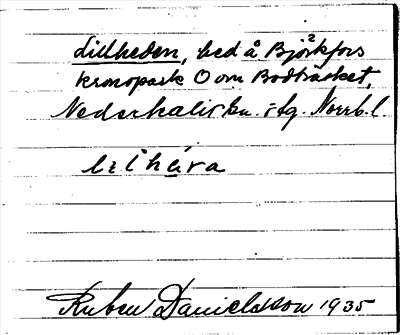 Lillheden, hed å Björkfors
kronopark O om Bodträsket,
Nederkalix sn. o tg. Norrb. l.
Ruben Danielsson 1935